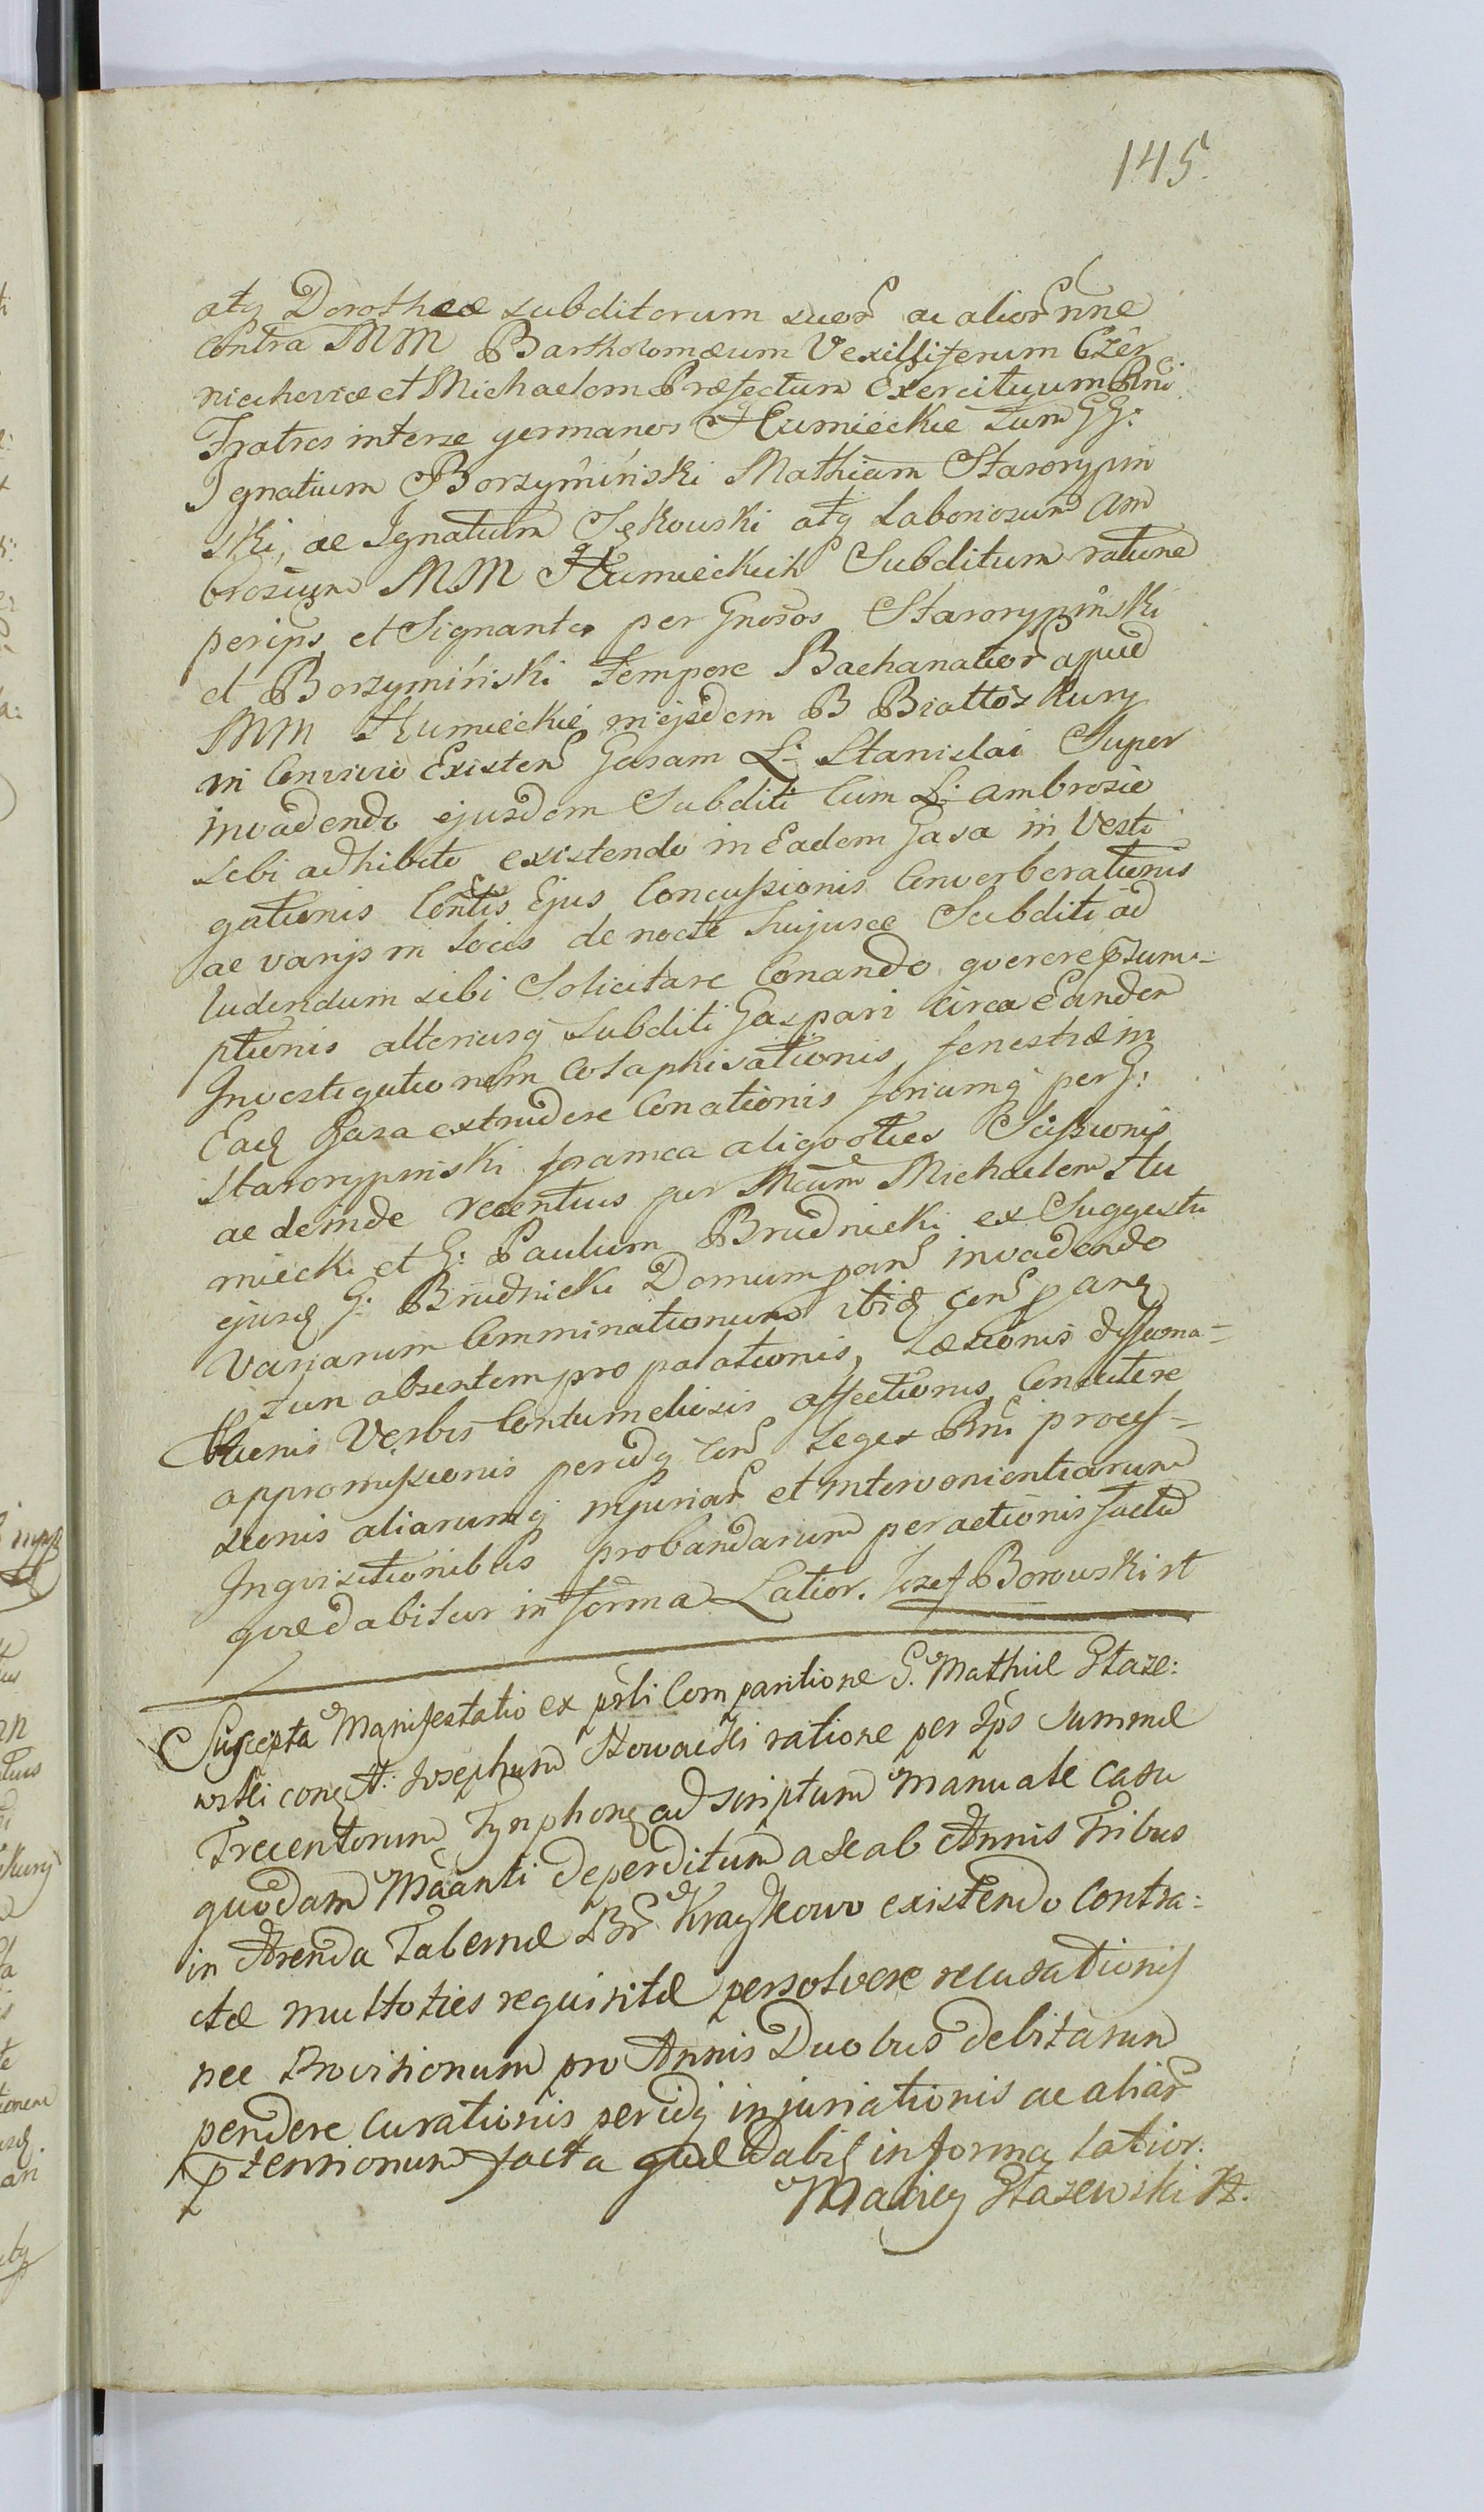 145.
atq Dorotheæ subditorum suor ac alior nne
Contra MM Bartholomæum Vexilliferum Czer
niechoviæ et Michaelem Præfectum Exercituum Rni
Fratres interse germanos Humieckie tum GG:
Ignatium Borzyminski Mathiam Starorypin
ski, ac Ignatium Sękowski atq Laboriosum Am
brosium MM Humieckich Subditum ratione
perips et Signanter per Gnosos Starorypinski
et Borzyminski tempore Bachanalior apud
MM Humieckie in ejsdem B Białłoskury
in Convivio Existen Gasam L: Stanislai Super
invadendo ejusdem Subditi Cum L: Ambrosio
sibi adhibito existendo in Eadem Gasa in Vesti
gationis Contis Ejus Concussionis Converberationis
ac varijs in locis de nocte hujusce Subditi ad
ludendum sibi Solicitare Conando qverere psum-
ptionis alteriusq Subditi Gaspari circa Eandem
Investigationem Colaphisationis fenestræ in
Ead Gasa extrudere Conationis foriumq per G:
Starorypinski framea aliqvoties Scissionis
ac deinde recentius per Mcum Michaelem Hu
miecki et G: Paulum Brudnicki ex Suggestu
ejusd G: Brudnicki Domum pan invadendo
Variarum Comminationum ibid Con pan
ptun absentem pro palationis, Læsionis diffama-
tionis Verbis Contumeliosis affectionis Concutere
appromissionis peridq Con Leges Rni proces-
sionis aliarumq injuriar et intervenientiarum
Inqvisitionibus probandarum peractionis facta
qvæ dabitur in forma Latior. Jozef Borowski st
Suscepta Manifestatio ex prsti Comparitione G. Mathiæ Staze:
wski cong A: Josephum Nowacki ratione per Ips summæ
Trecentorum Tynphong ad scriptum Manuale casu
quodam Maanti deperditum a se ab Annis Tribus
in Arenda Tabernæ Br Kraykowo existendo Contra:
ctæ multoties requisitæ persolvere recusationis
nec Provisionum pro Annis Duobus debitarum
pendere curationis peridq injuriationis ac aliar
ptensionum facta quæ dabit in forma latior.
Maciey Stazewski st.